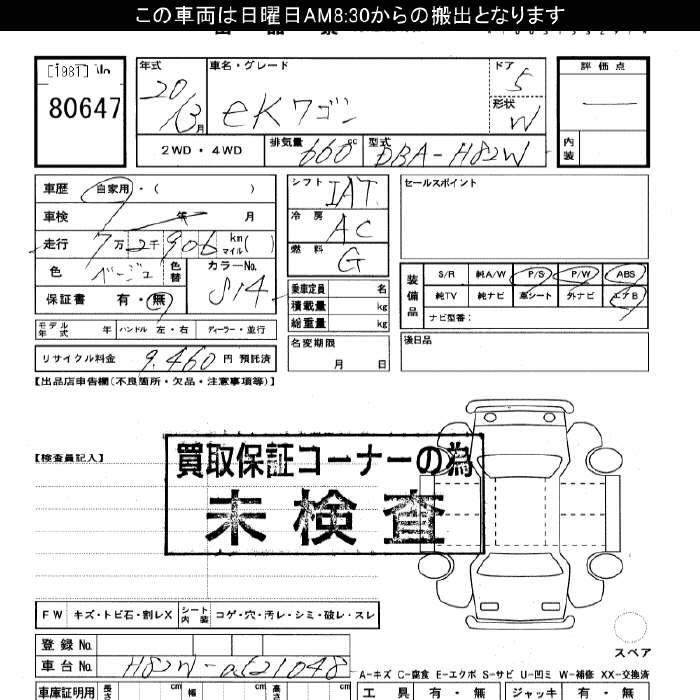 この車両は日曜日AM8:30からの搬出となります
[1981] No
80647
年式 車名・グレード ドア 評価点
20/3月 eKワゴン 5
形状 W
2WD・4WD 排気量 660cc 型式 DBA-H82W 内装
車歴 自家用・( )
車検 年 月
走行 7万2千906 km マイル( )
色 ベージュ 色替 カラーNo. S14
保証書 有・無
モデル年式 年 ハンドル 左・右 ディーラー・並行
リサイクル料金 9.460 円 預託済
シフト IAT
冷房 AC
燃料 G
乗車定員 名
積載量 kg
総重量 kg
名変期限
月 日
セールスポイント
装備品 S/R 純A/W P/S P/W ABS
純TV 純ナビ 革シート 外ナビ エアB
ナビ型番:
後日品
【出品店申告欄(不良箇所・欠品・注意事項等)】
【検査員記入】
買取保証コーナーの為
未検査
FW キズ・トビ石・割レX シート内装 コゲ・穴・汚レ・シミ・破レ・スレ
登録No.
車台No. H82W-
スペア
A-キズ C-腐食 E-エクボ S-サビ U-凹ミ W-補修 XX-交換済
車庫証明用 長さ cm 幅 cm 高さ cm 工具 有・無 ジャッキ 有・無